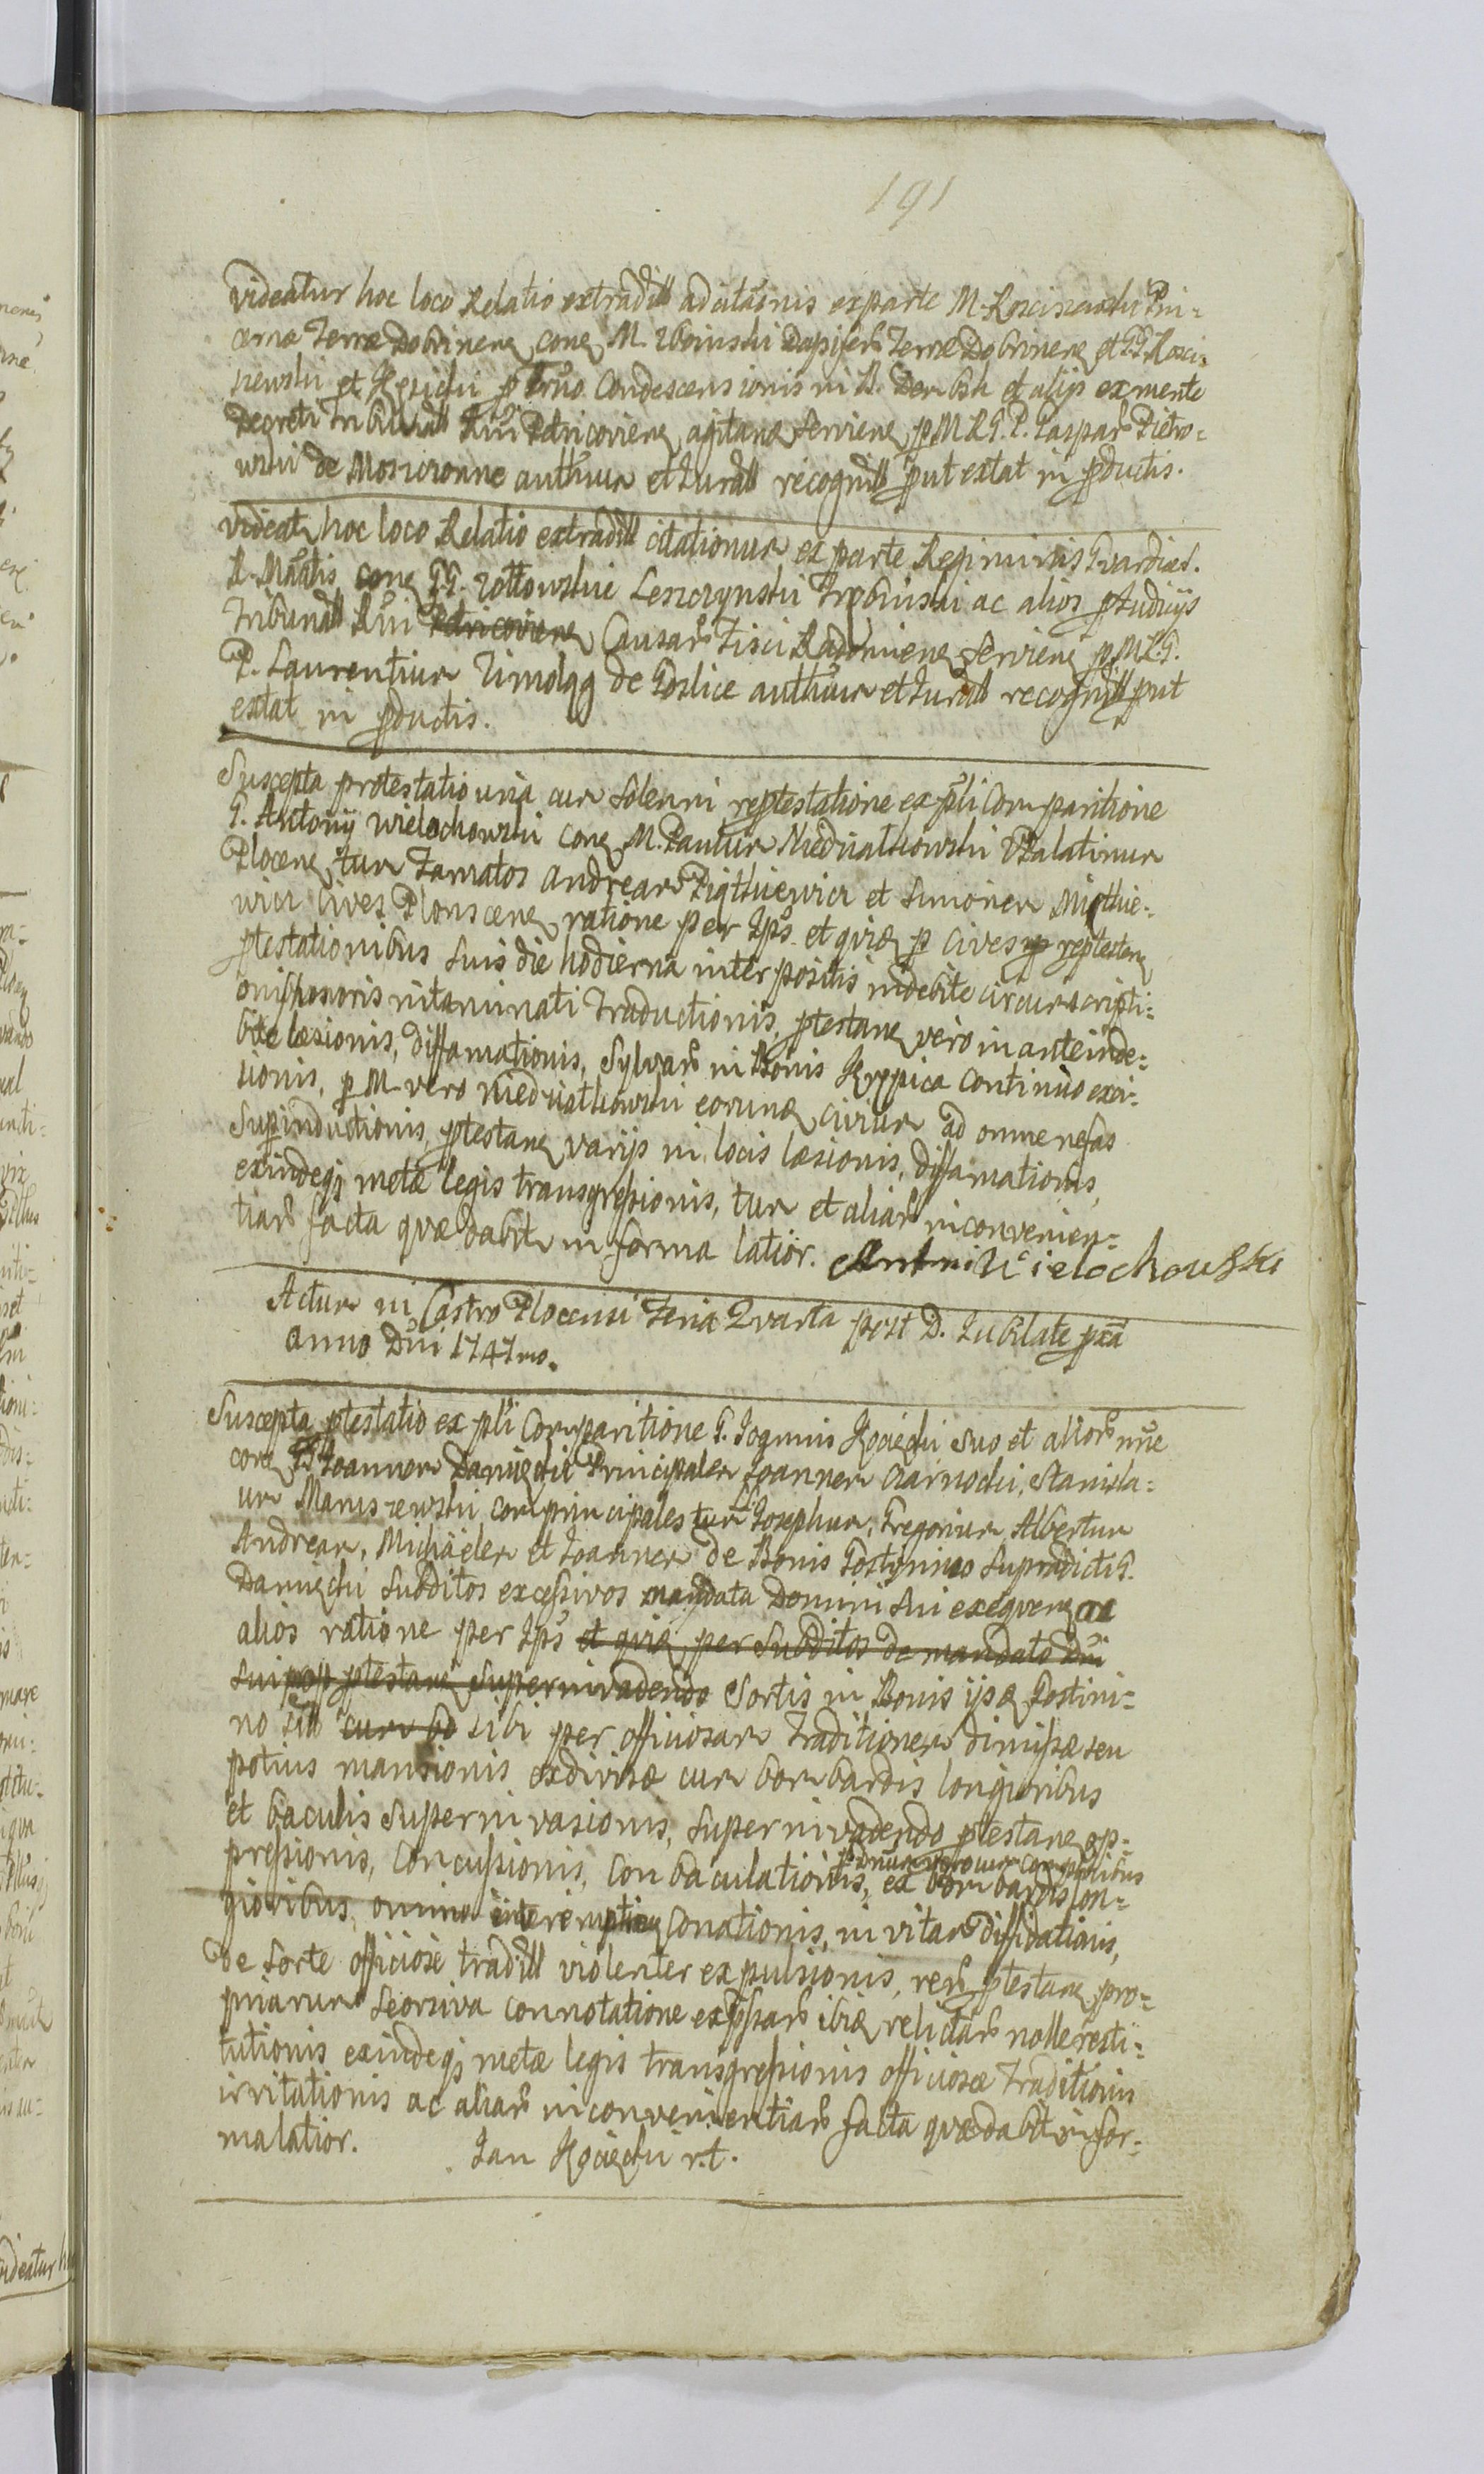 191
videatur hoc loco Relatio extradit adcitaōnis ex parte M. Koscisewski Pin=
cernæ Terræ Dobrinen conq M. Zboinski Dapiferū Terræ Dobrinen et GG Kosci=
newski et Kęsicki p Condescensionis in B. Dembsk et alijs ex mente
Decreti Tribunal Rni Petricovien agitan Servien p M R G. P. Caspar Pietro=
wski de Moszczonne authum et Jurat recognit put extat in pductis.
videat hoc loco Relatio extradit citationum ex parte Regiminis Gvardiæ S.
R. Mattis conq GG. Zottowskie Leszczynski Trzbinski ac alios pJudicijs
Tribunal Rni Petricovien Causarū Fisci Radomien Servien p. M R. G.
P. Laurentium Zimoląg de Goslice authum et Jurat recognit put
extat in pductis.
Suscepta protestatio una cum Solenni reptestatione ex pli Comparitione
G. Antonij Wielochowski conq M. Paulum Niedziatkowski VPalatinum
Plocen, tum Famatos Andream Piątkiewicz et Simonem Mięthie=
wicz Cives Plonscen ratione per Ips et quia p Cives reptesten
ptestationibus Suis die hodierna interpositis indebite circumscripti=
onis, honoris nitaminati Traductionis, ptestane vero in ante inde=
bite læsionis, diffamationis, Sylvarū in Bonis Krępica Continuo exci=
sionis, p M. vero Niedziatkowski eorunq civium ad omne nefas
Superinductionis, ptestane varijs in locis læsionis, diffamationis,
exindeqꝫ metæ legis transgressionis, tum et aliarū inconvenien=
tiarū facta quæ dabit in forma latior. Antoni Wielochowski
Actum in Castro Plocensi Feria Quarta post D. Jubilate pxa
Anno Dni 1747mo.
Suscepta ptestatio ex pli Comparitione G. Joannis Kociecki Suo et aliorū nne
conq GG Joannem Daniecki Principalem Joannem Czarnocki, Stanisla=
um Maruszewski comprincipales tum LL. Josephum, Gregorium, Albertum
Andream, Michaelem et Joannem de Bonis Gostynino Supradicti G.
Daniecki Subditos excessivos mandata Domini Sui exequen ac
alios ratione per Ips et quia per Subditos de mandato Dni
Sui ptestane Superinvadendo Sortis in Bonis ijsq Gostini=
no sitt cum bo sibi per officiosam Traditionem dimissæ seu
potius mansionis exdivisæ cum bombardis longioribus
et baculis Superinvasionis, Superinvadendo ptestane op=
pressionis, Concussionis, Conbaculationis, ex bombardis lon=
gioribus, omnino interemptien Conationis, in vitam diffidationis,
de Sorte officiose tradit violenter expulsionis, rerū ptestane pro=
priarum Seorsiva connotatione expssarū ibiq relictarū nolle resti=
tutionis exindeqꝫ metæ legis transgressionis officiosæ Traditionis
irritationis ac aliarū inconvenientiarū facta quæ dabit in for=
ma latior. Jan Kociecki r.t.